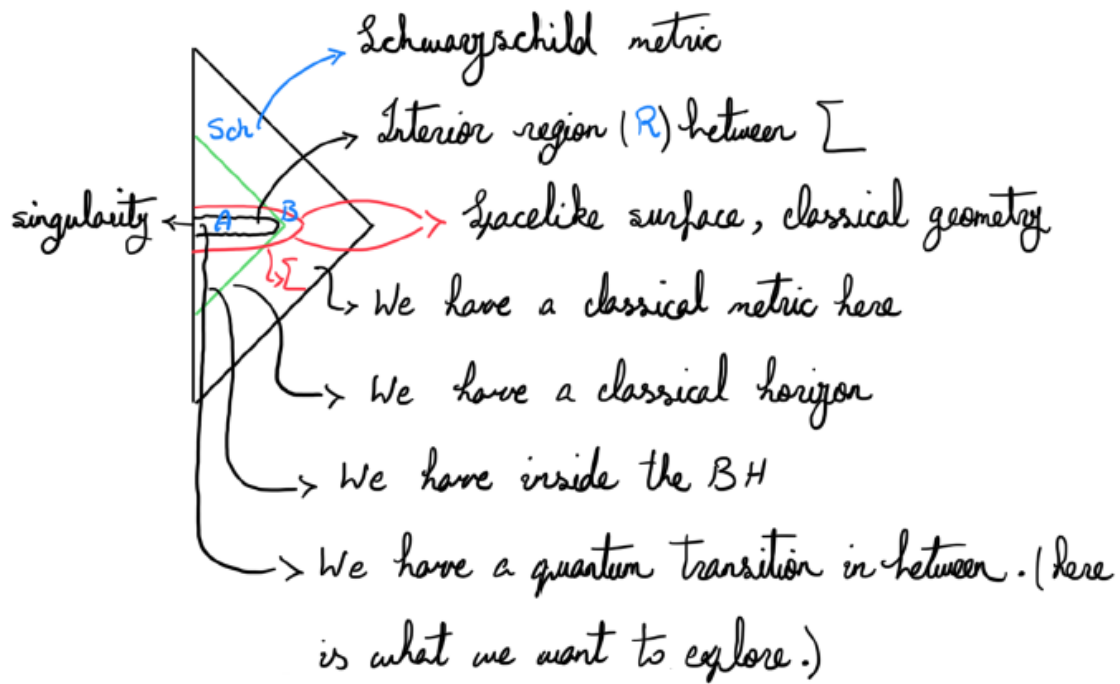 Schwarzschild metric
Sch
Interior region (R) between Σ
singularity
A
B
Spacelike surface, classical geometry
Σ
We have a classical metric here
We have a classical horizon
We have inside the BH
We have a quantum transition in between. (here
is what we want to explore.)